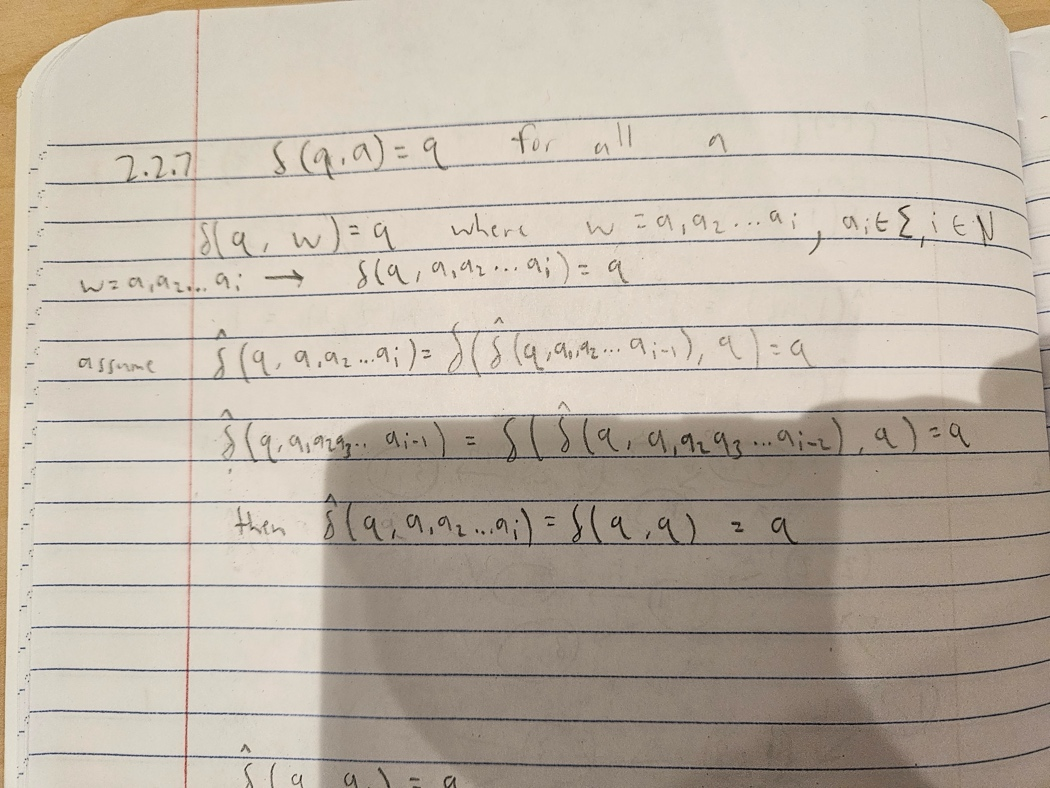 2.2.7 δ(q,a) = q for all a
δ(q, w) = q where w = a₁a₂...aᵢ, aᵢ ∈ Σ, i ∈ N
w = a₁a₂...aᵢ → δ(q, a₁a₂...aᵢ) = q
assume δ̂(q, a₁a₂...aᵢ) = δ(δ̂(q,a₁,a₂...aᵢ₋₁), a) = q
δ̂(q,a₁a₂a₃...aᵢ₋₁) = δ(δ̂(q, a₁a₂a₃...aᵢ₋₂), a) = q
then δ̂(q, a₁a₂...aᵢ) = δ(q,a) = q